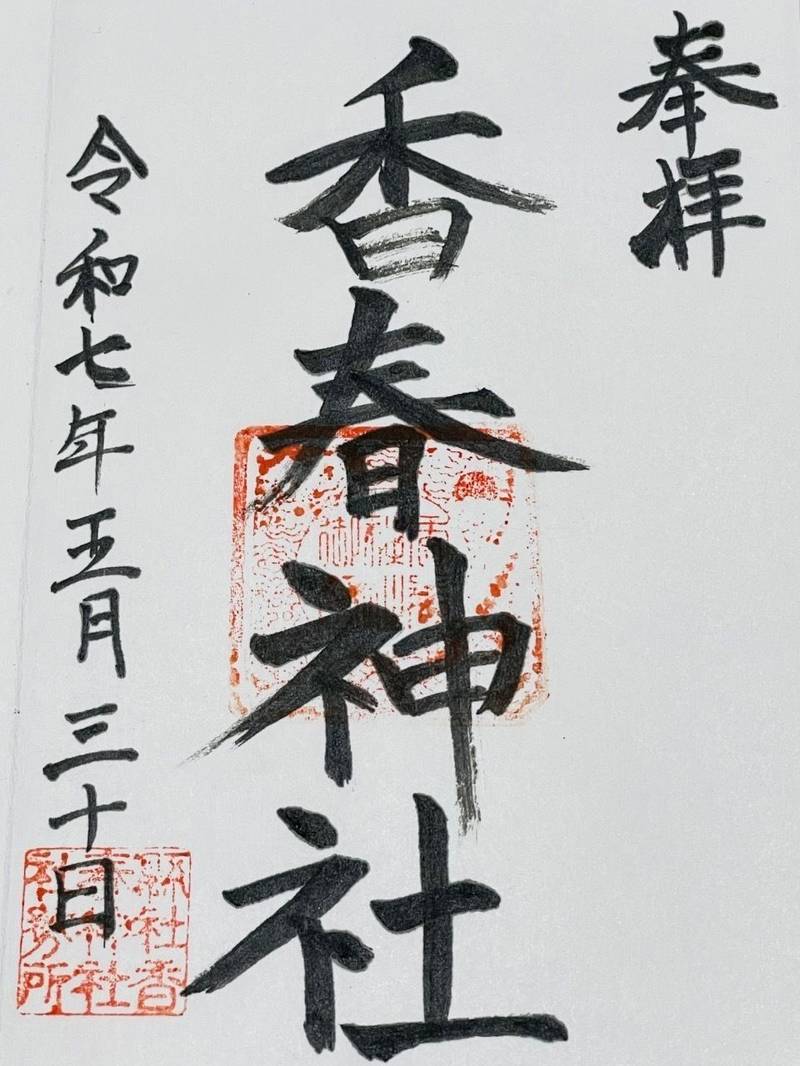 奉拝
香春神社
令和七年五月三十日
縣社香
春神社
社務所